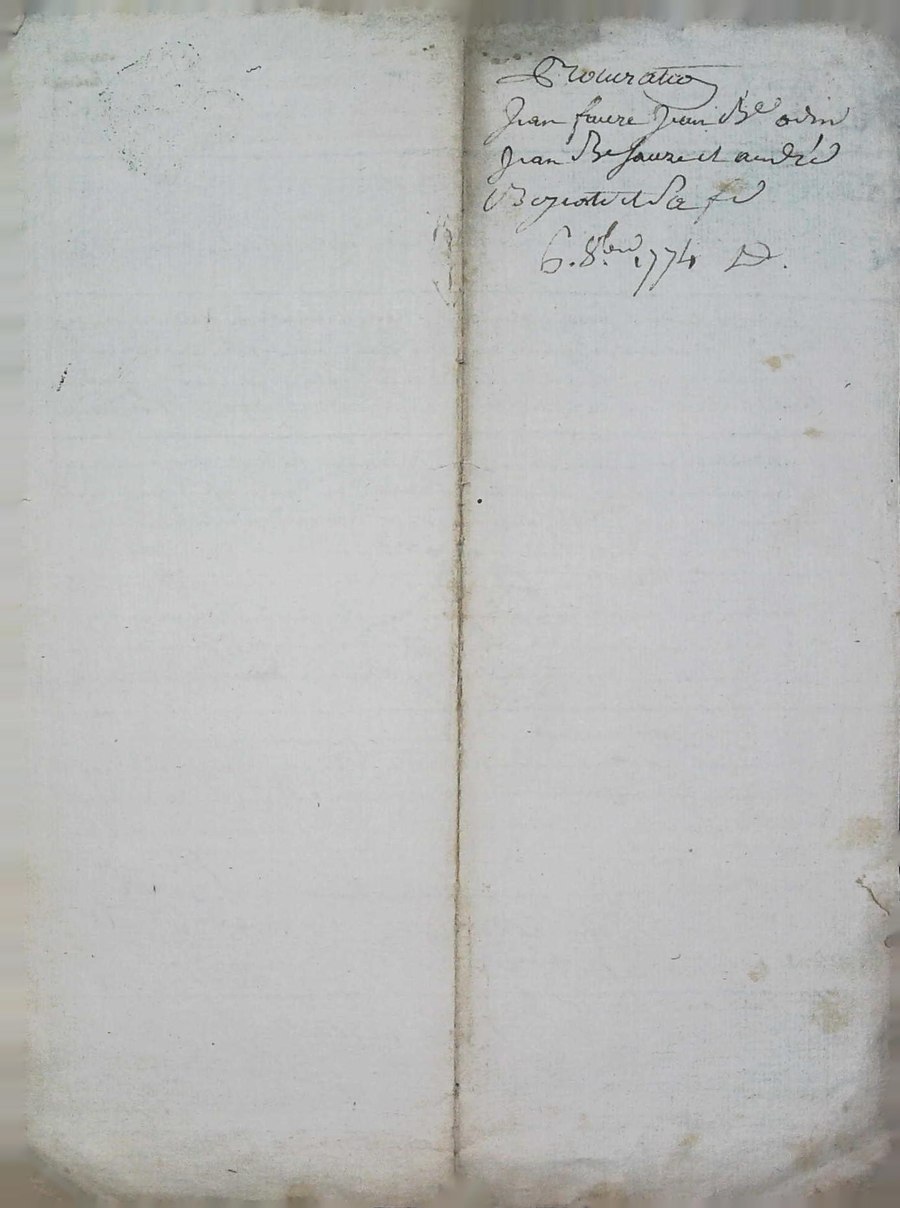 Procuration
Jean faure Jean Bte odin
Jean Bte faure et andré
et Sa fe
6. 8bre 1774 D.